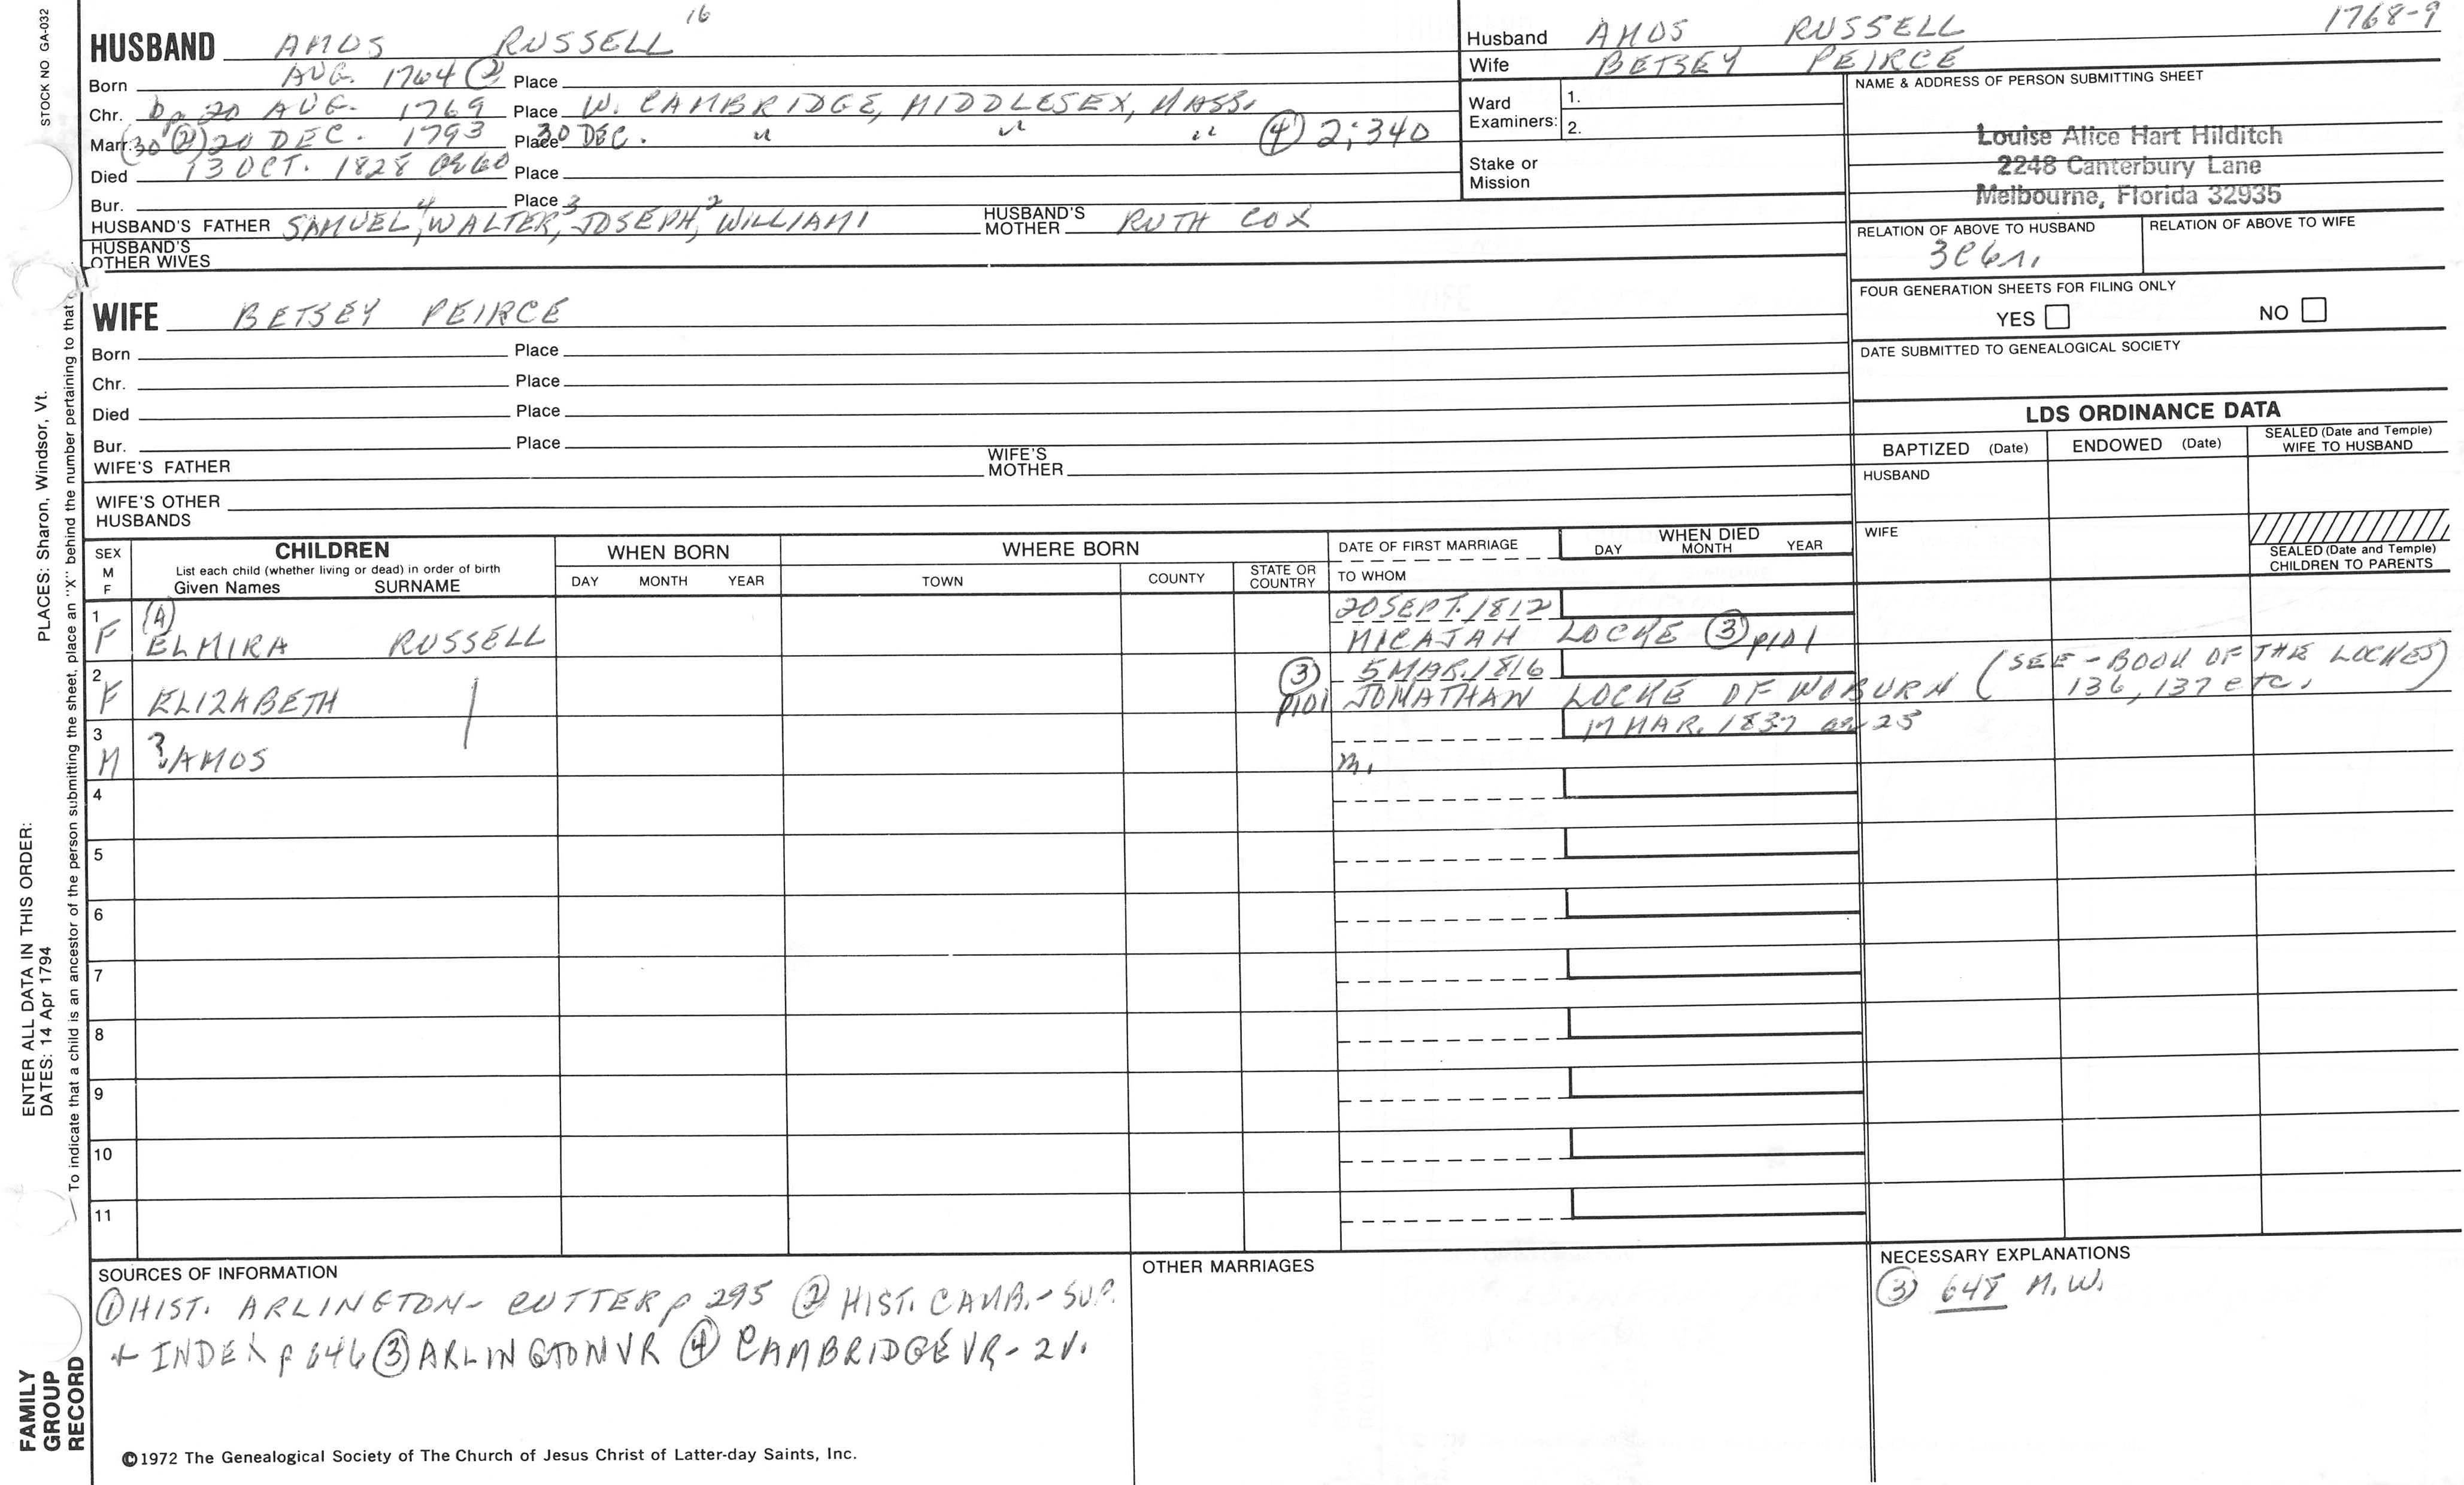 STOCK NO GA-032
16
HUSBAND AMOS RUSSELL
Born AUG. 1764 (2) Place
Chr. bp 20 AUG. 1769 Place W. CAMBRIDGE, MIDDLESEX, MASS.
Marr. (30 (2)) 20 DEC. 1793 Place 30 DEC. " " " (4) 2:340
Died 13 OCT. 1828 ae 60 Place
Bur. Place
HUSBAND'S FATHER SAMUEL 4, WALTER 3, JOSEPH 2, WILLIAM 1 HUSBAND'S MOTHER RUTH COX
HUSBAND'S OTHER WIVES
WIFE BETSEY PEIRCE
Born Place
Chr. Place
Died Place
Bur. Place
WIFE'S FATHER WIFE'S MOTHER
WIFE'S OTHER HUSBANDS
1768-9
Husband AMOS RUSSELL
Wife BETSEY PEIRCE
Ward Examiners: 1.
2.
Stake or Mission
NAME & ADDRESS OF PERSON SUBMITTING SHEET
Louise Alice Hart Hilditch
2248 Canterbury Lane
Melbourne, Florida 32935
RELATION OF ABOVE TO HUSBAND RELATION OF ABOVE TO WIFE
FOUR GENERATION SHEETS FOR FILING ONLY
YES NO
DATE SUBMITTED TO GENEALOGICAL SOCIETY
LDS ORDINANCE DATA
BAPTIZED (Date) ENDOWED (Date) SEALED (Date and Temple) WIFE TO HUSBAND
HUSBAND
WIFE
SEALED (Date and Temple) CHILDREN TO PARENTS
SEX M F
CHILDREN
List each child (whether living or dead) in order of birth
Given Names SURNAME
WHEN BORN
DAY MONTH YEAR
WHERE BORN
TOWN COUNTY STATE OR COUNTRY
DATE OF FIRST MARRIAGE
TO WHOM
WHEN DIED
DAY MONTH YEAR
1 (4) 20 SEPT. 1812
F ELMIRA RUSSELL MICAJAH LOCKE (3) p101
2 (3) 5 MAR. 1816 (SEE - BOOK OF THE LOCKES)
F ELIZABETH p101 JONATHAN LOCKE OF WOBURN 136, 137 etc.
3 17 MAR. 1837 ae 25
M ? AMOS m.
4
5
6
7
8
9
10
11
SOURCES OF INFORMATION
(1) HIST. ARLINGTON - CUTTER p 295 (2) HIST. CAMB. - SUP.
+ INDEX p 646 (3) ARLINGTON VR (4) CAMBRIDGE VR - 2V.
OTHER MARRIAGES
NECESSARY EXPLANATIONS
(3) 648 M.W.
©1972 The Genealogical Society of The Church of Jesus Christ of Latter-day Saints, Inc.
PLACES: Sharon, Windsor, Vt.
To indicate that a child is an ancestor of the person submitting the sheet, place an "X" behind the number pertaining to that
ENTER ALL DATA IN THIS ORDER:
DATES: 14 Apr 1794
FAMILY GROUP RECORD